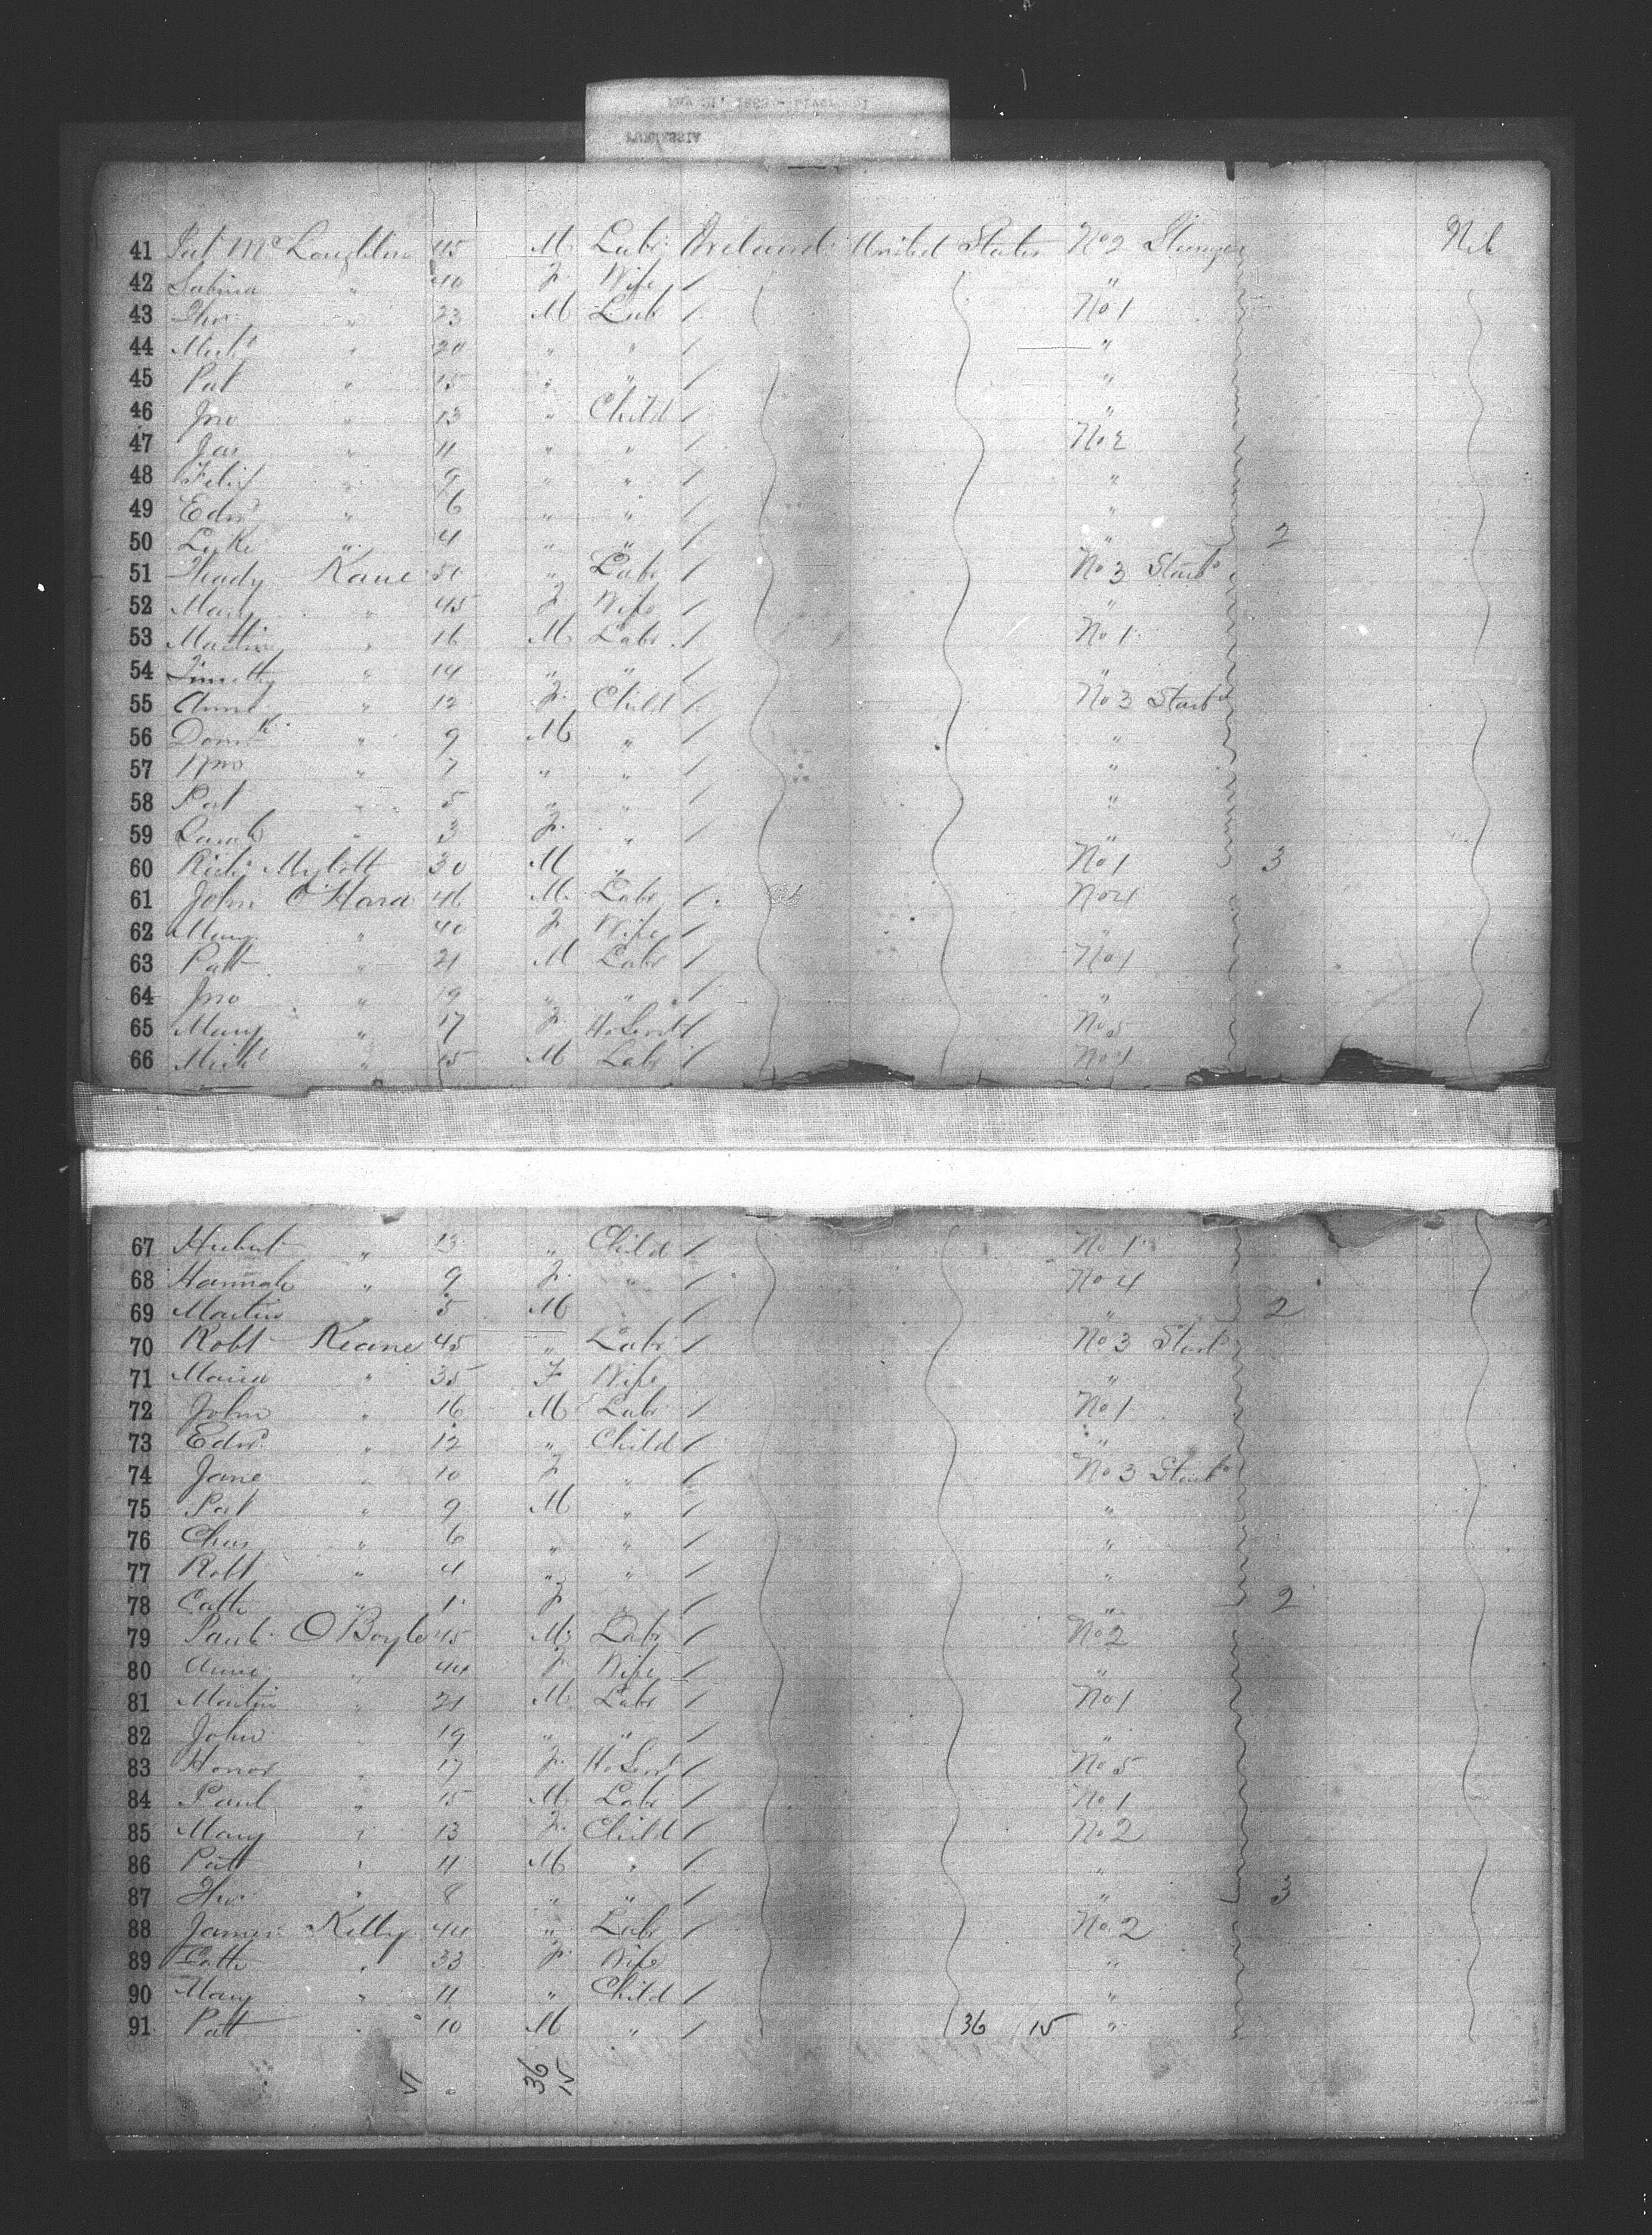 41 Pat McLoughlin 45 M Labr Ireland United States No 2 Steerage Nil
42 Sabina " 40 F Wife / "
43 Thos " 23 M Lab / No 1
44 Michl " 20 " " / "
45 Pat " 15 " " / "
46 Jno " 13 " Child / "
47 Jas " 11 " " / No 2
48 Felix " 9 " " / "
49 Edwd " 6 " " / "
50 Luke " 4 " " / " 2
51 Thady Kane 50 " Labr / No 3 Starbd
52 Mary " 45 F Wife / "
53 Martin " 16 M Labr / No 1
54 Timothy " 14 " " / "
55 Anne " 12 F Child / No 3 Starbd
56 Domk " 9 M " / "
57 Jno " 7 " " / "
58 Pat " 5 " " / "
59 Sarah " 3 F " / "
60 Richd 30 M " No 1 3
61 John O'Hara 46 M Labr / No 4
62 Mary " 40 F Wife / "
63 Patt " 21 M Labr / No 1
64 Jno " 19 " " / "
65 Mary " 17 F HoServt / No 5
66 Michl " 15 M Labr / No 1
67 Hubert " 13 " Child / No 1
68 Hannah " 9 F " / No 4
69 Martin " 5 M " / " 2
70 Robt Keane 45 " Labr / No 3 Starbd
71 Maria " 35 F Wife "
72 John " 16 M Labr / No 1
73 Edwd " 12 " Child / "
74 Jane " 10 F " / No 3 Starbd
75 Pat " 9 M " / "
76 Chas " 6 " " / "
77 Robt " 4 " " / "
78 Cath " 1 F " / " 2
79 O'Boyle 45 M Labr / No 2
80 Anne " 44 F Wife / "
81 Martin " 21 M Labr / No 1
82 John " 19 " " / "
83 Honor " 17 F HoServt / No 5
84 Paul " 15 M Labr / No 1
85 Mary " 13 F Child / No 2
86 Patt " 11 M " / "
87 Thos " 8 " " / " 3
88 James Kelly 44 " Labr / No 2
89 Cath " 33 F Wife "
90 Mary " 11 " Child / "
91 Patt " 10 M " / 36 / 15 "
36
15